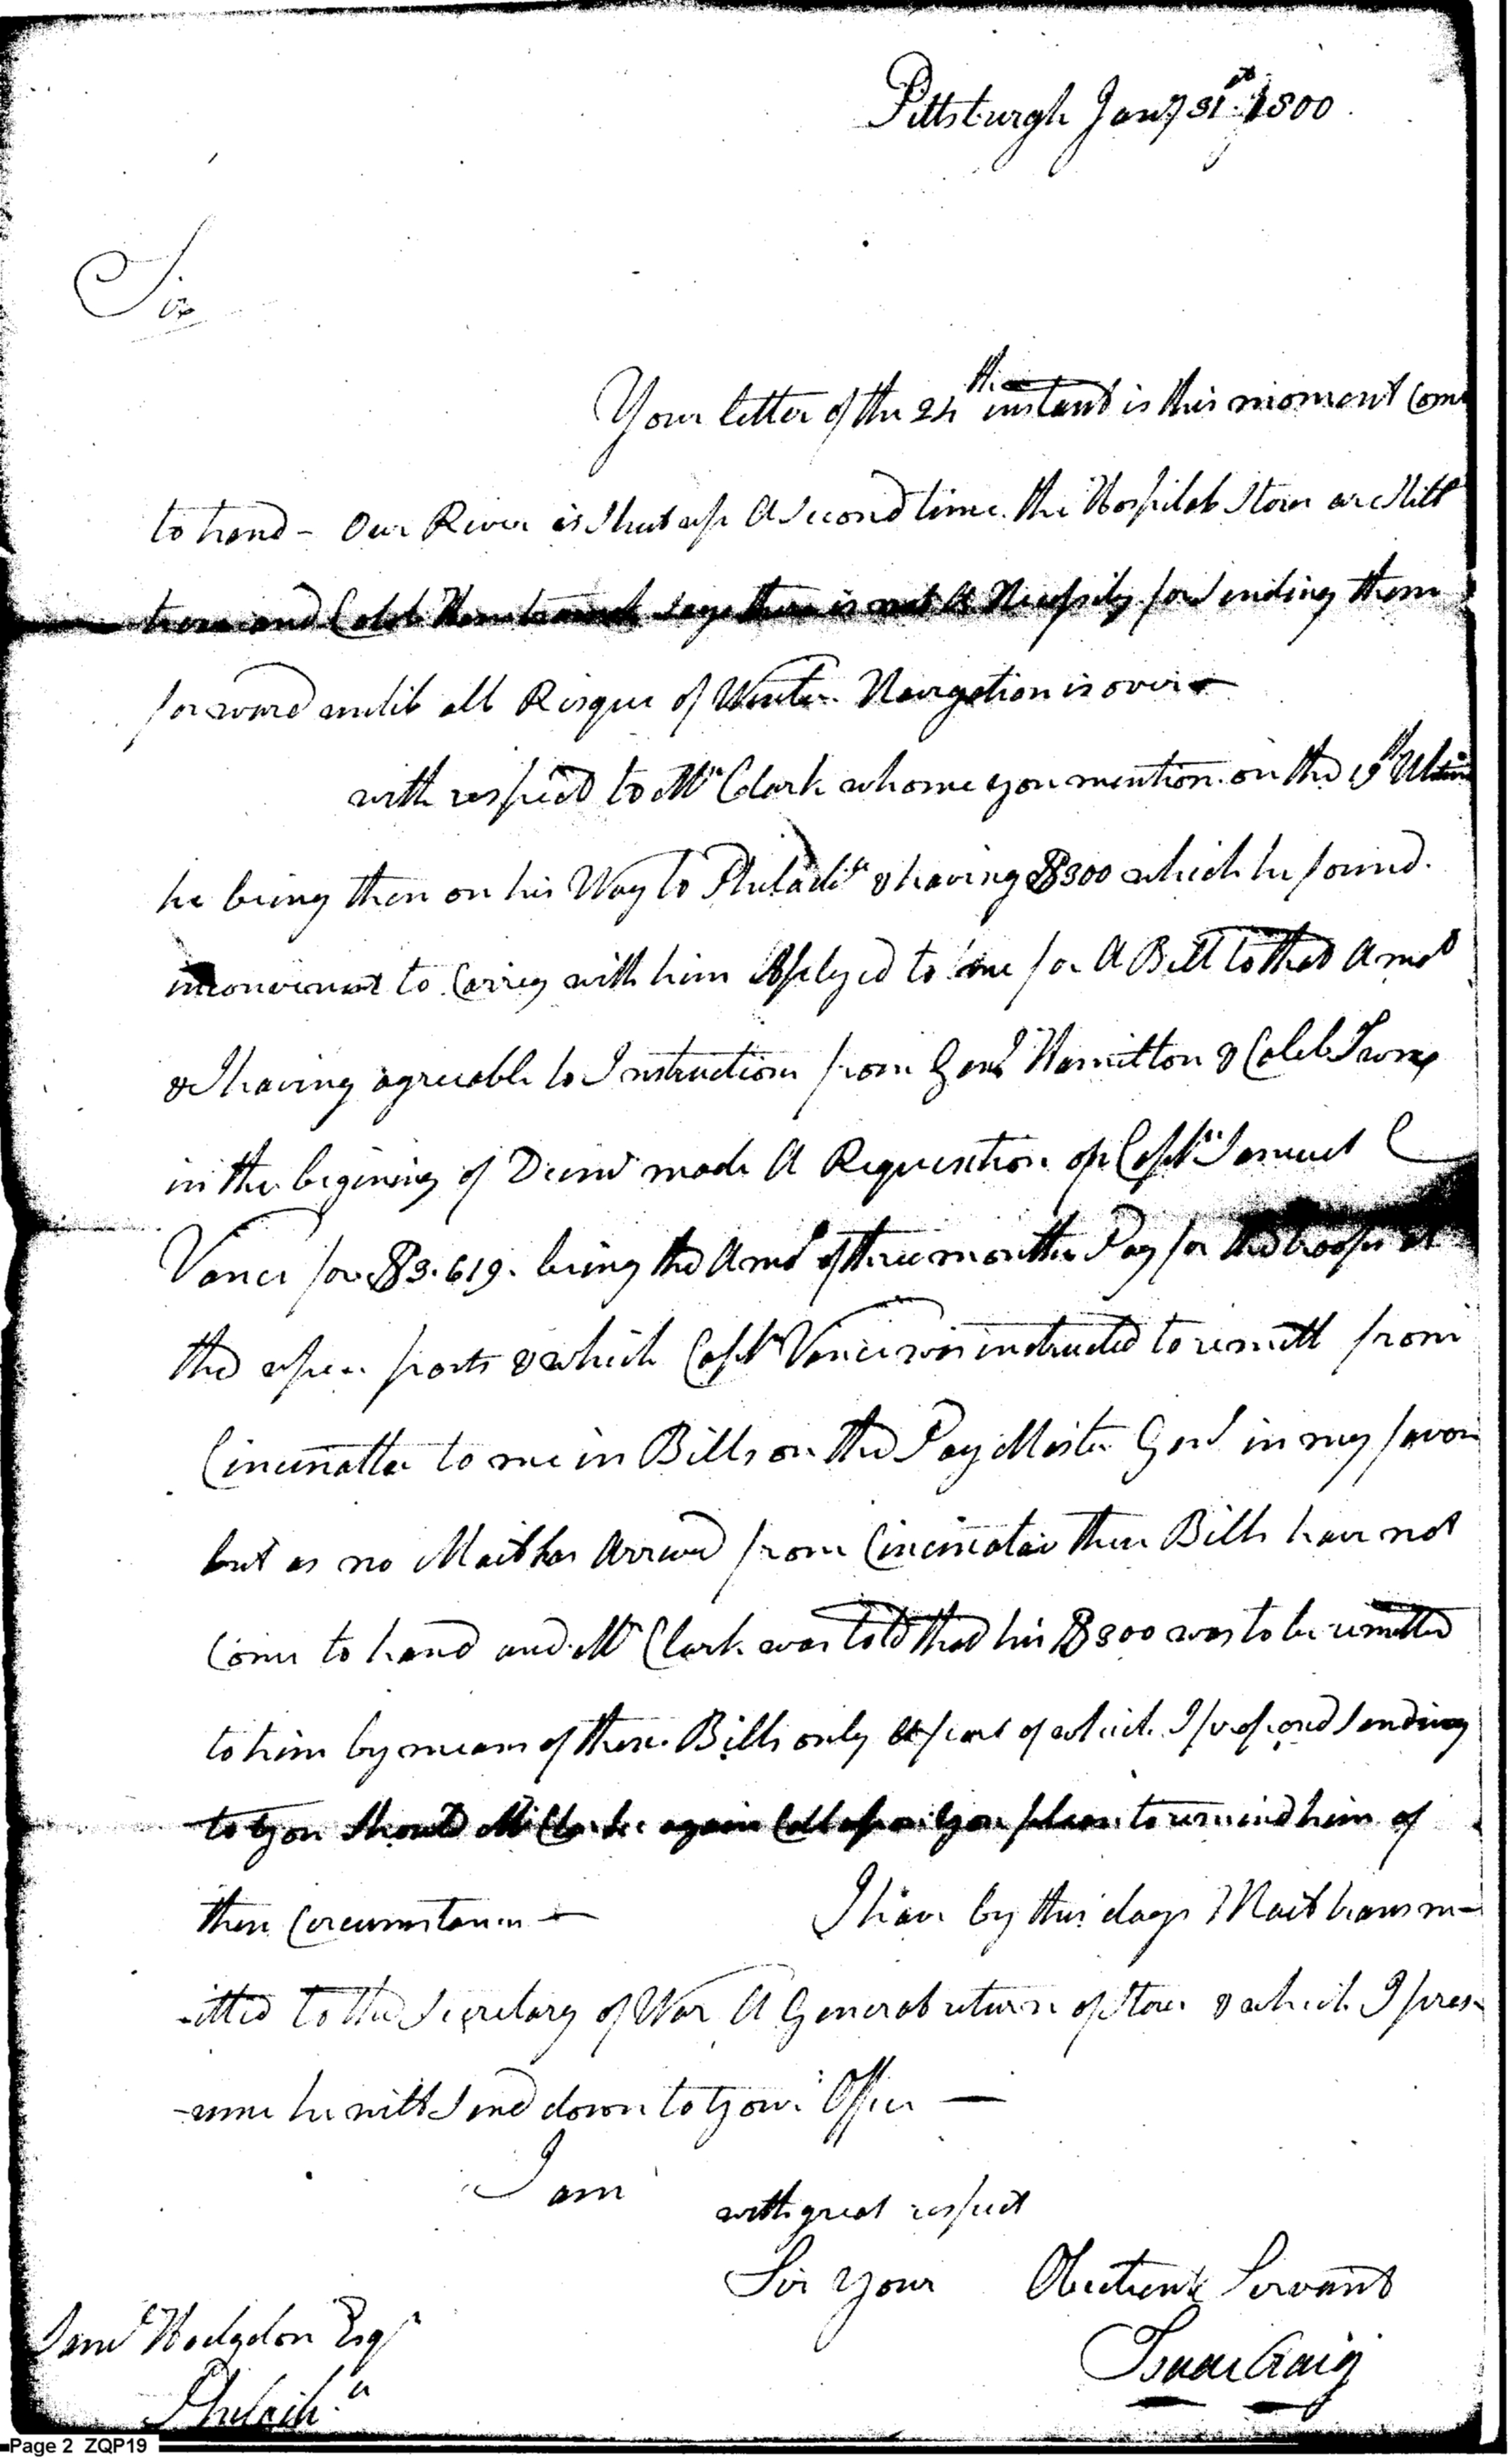 Pittsburgh Jany 31st 1800
Sir
Your letter of the 24th instant is this moment Come
to hand - Our River is Shut up A Second time. the Hospital Stores are Still
here and Colol Hamtramck says there is not A Necessity for sending them
forward until all Risque of Winter Navigation is over -
with respect to Mr Clark whome you mention on the Ultimo
he being then on his Way to Philada & having $300 which he found
inconvenient to Carrey with him Applyed to me for A Bill to that Amot
& I having agreeable to Instructions from Genl Hamilton & Caleb Swan
in the begining of Decemr made A Requisition on Captn Samuel C
Vance for $3.619. being the Amot of three months Pay for the troops at
the upper posts & which Captn Vance was instructed to remitt from
Cincinatta to me in Bills on the Pay Master Genl in my favor
but as no Mail has Arrived from Cincinatai these Bills have not
Come to hand and Mr Clark was told that his $300 was to be remitted
to him by means of these Bills only A part of which I proposed Sending
to you Should Mr Clarke again Call upon you please to remind him of
these Circumstances - I have by this days Mail transm-
-itted to the Secretary of War A General return of Stores & which I pres-
-ume he will Send down to your Office —
I am
with great respect
Sir Your Obedient Servant
Isaac Craig
Saml Hodgdon Esqr
Philada
Page 2 ZQP19